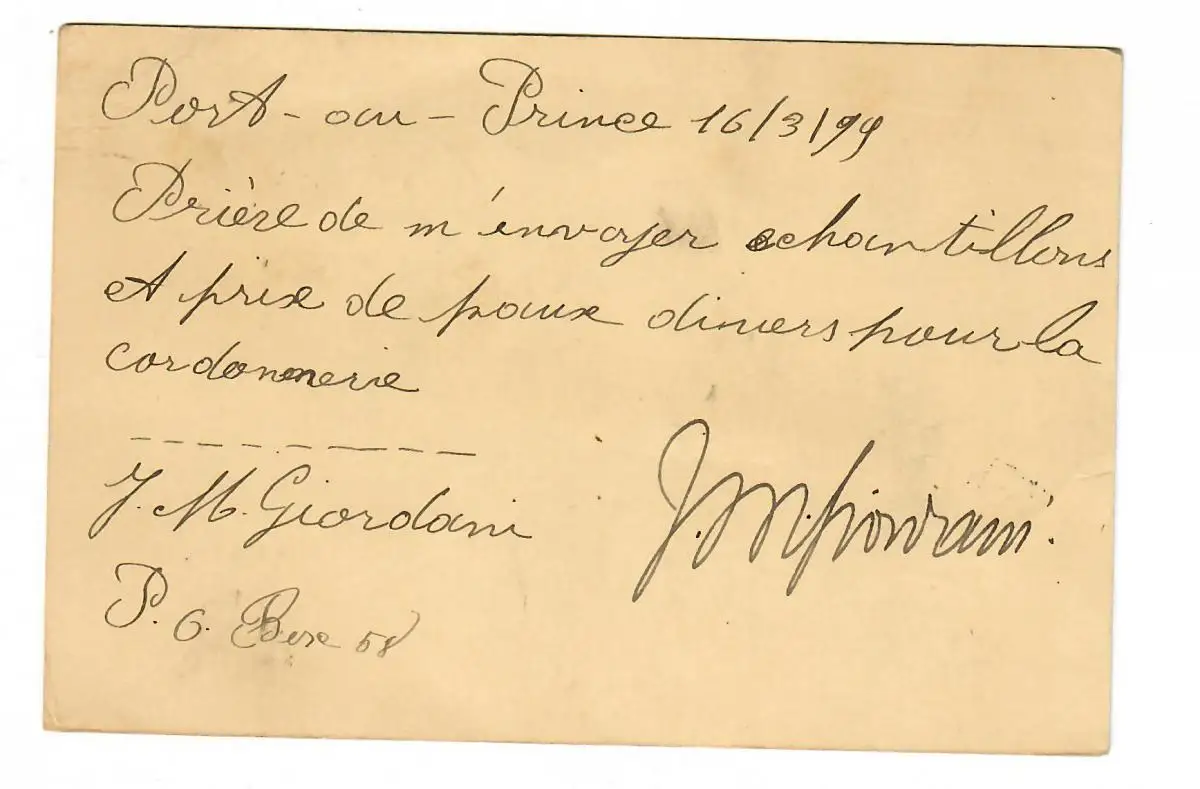 Port-au-Prince 16/3/99
Prière de m'envoyer echantillons
et prix de peaux divers pour la
cordonnerie
J. M. Giordani
J.M. Giordani.
P. O. Box 58